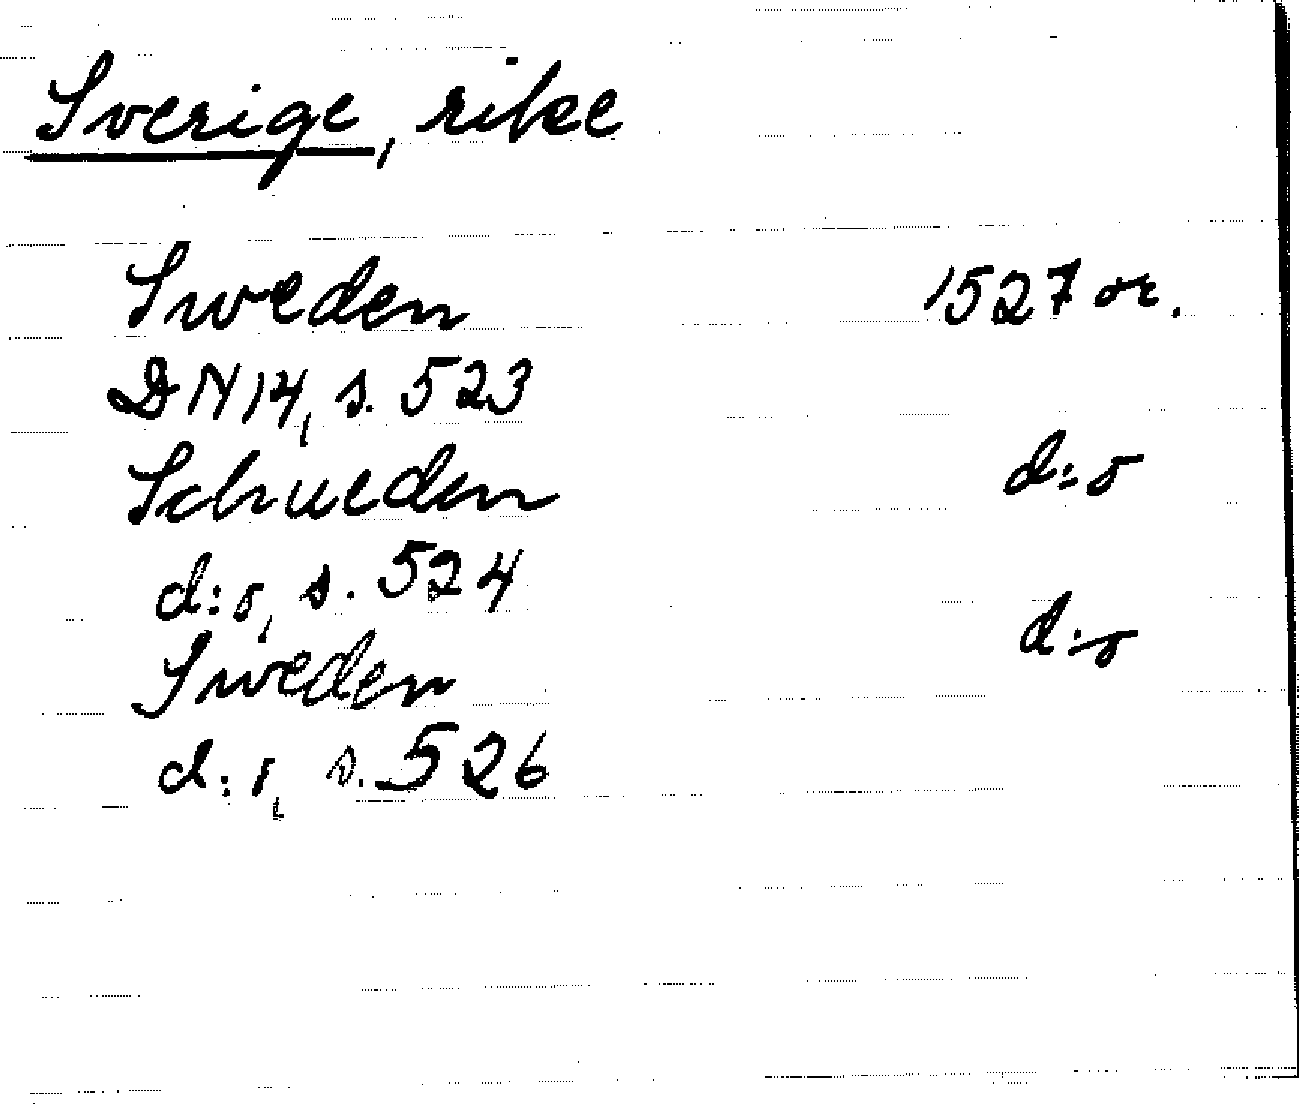 Sverige, rike
Sweden 1527 or.
DN 14, s. 523
Schueden d:o
d:o, s. 524
Sweden d:o
d:o, s. 526